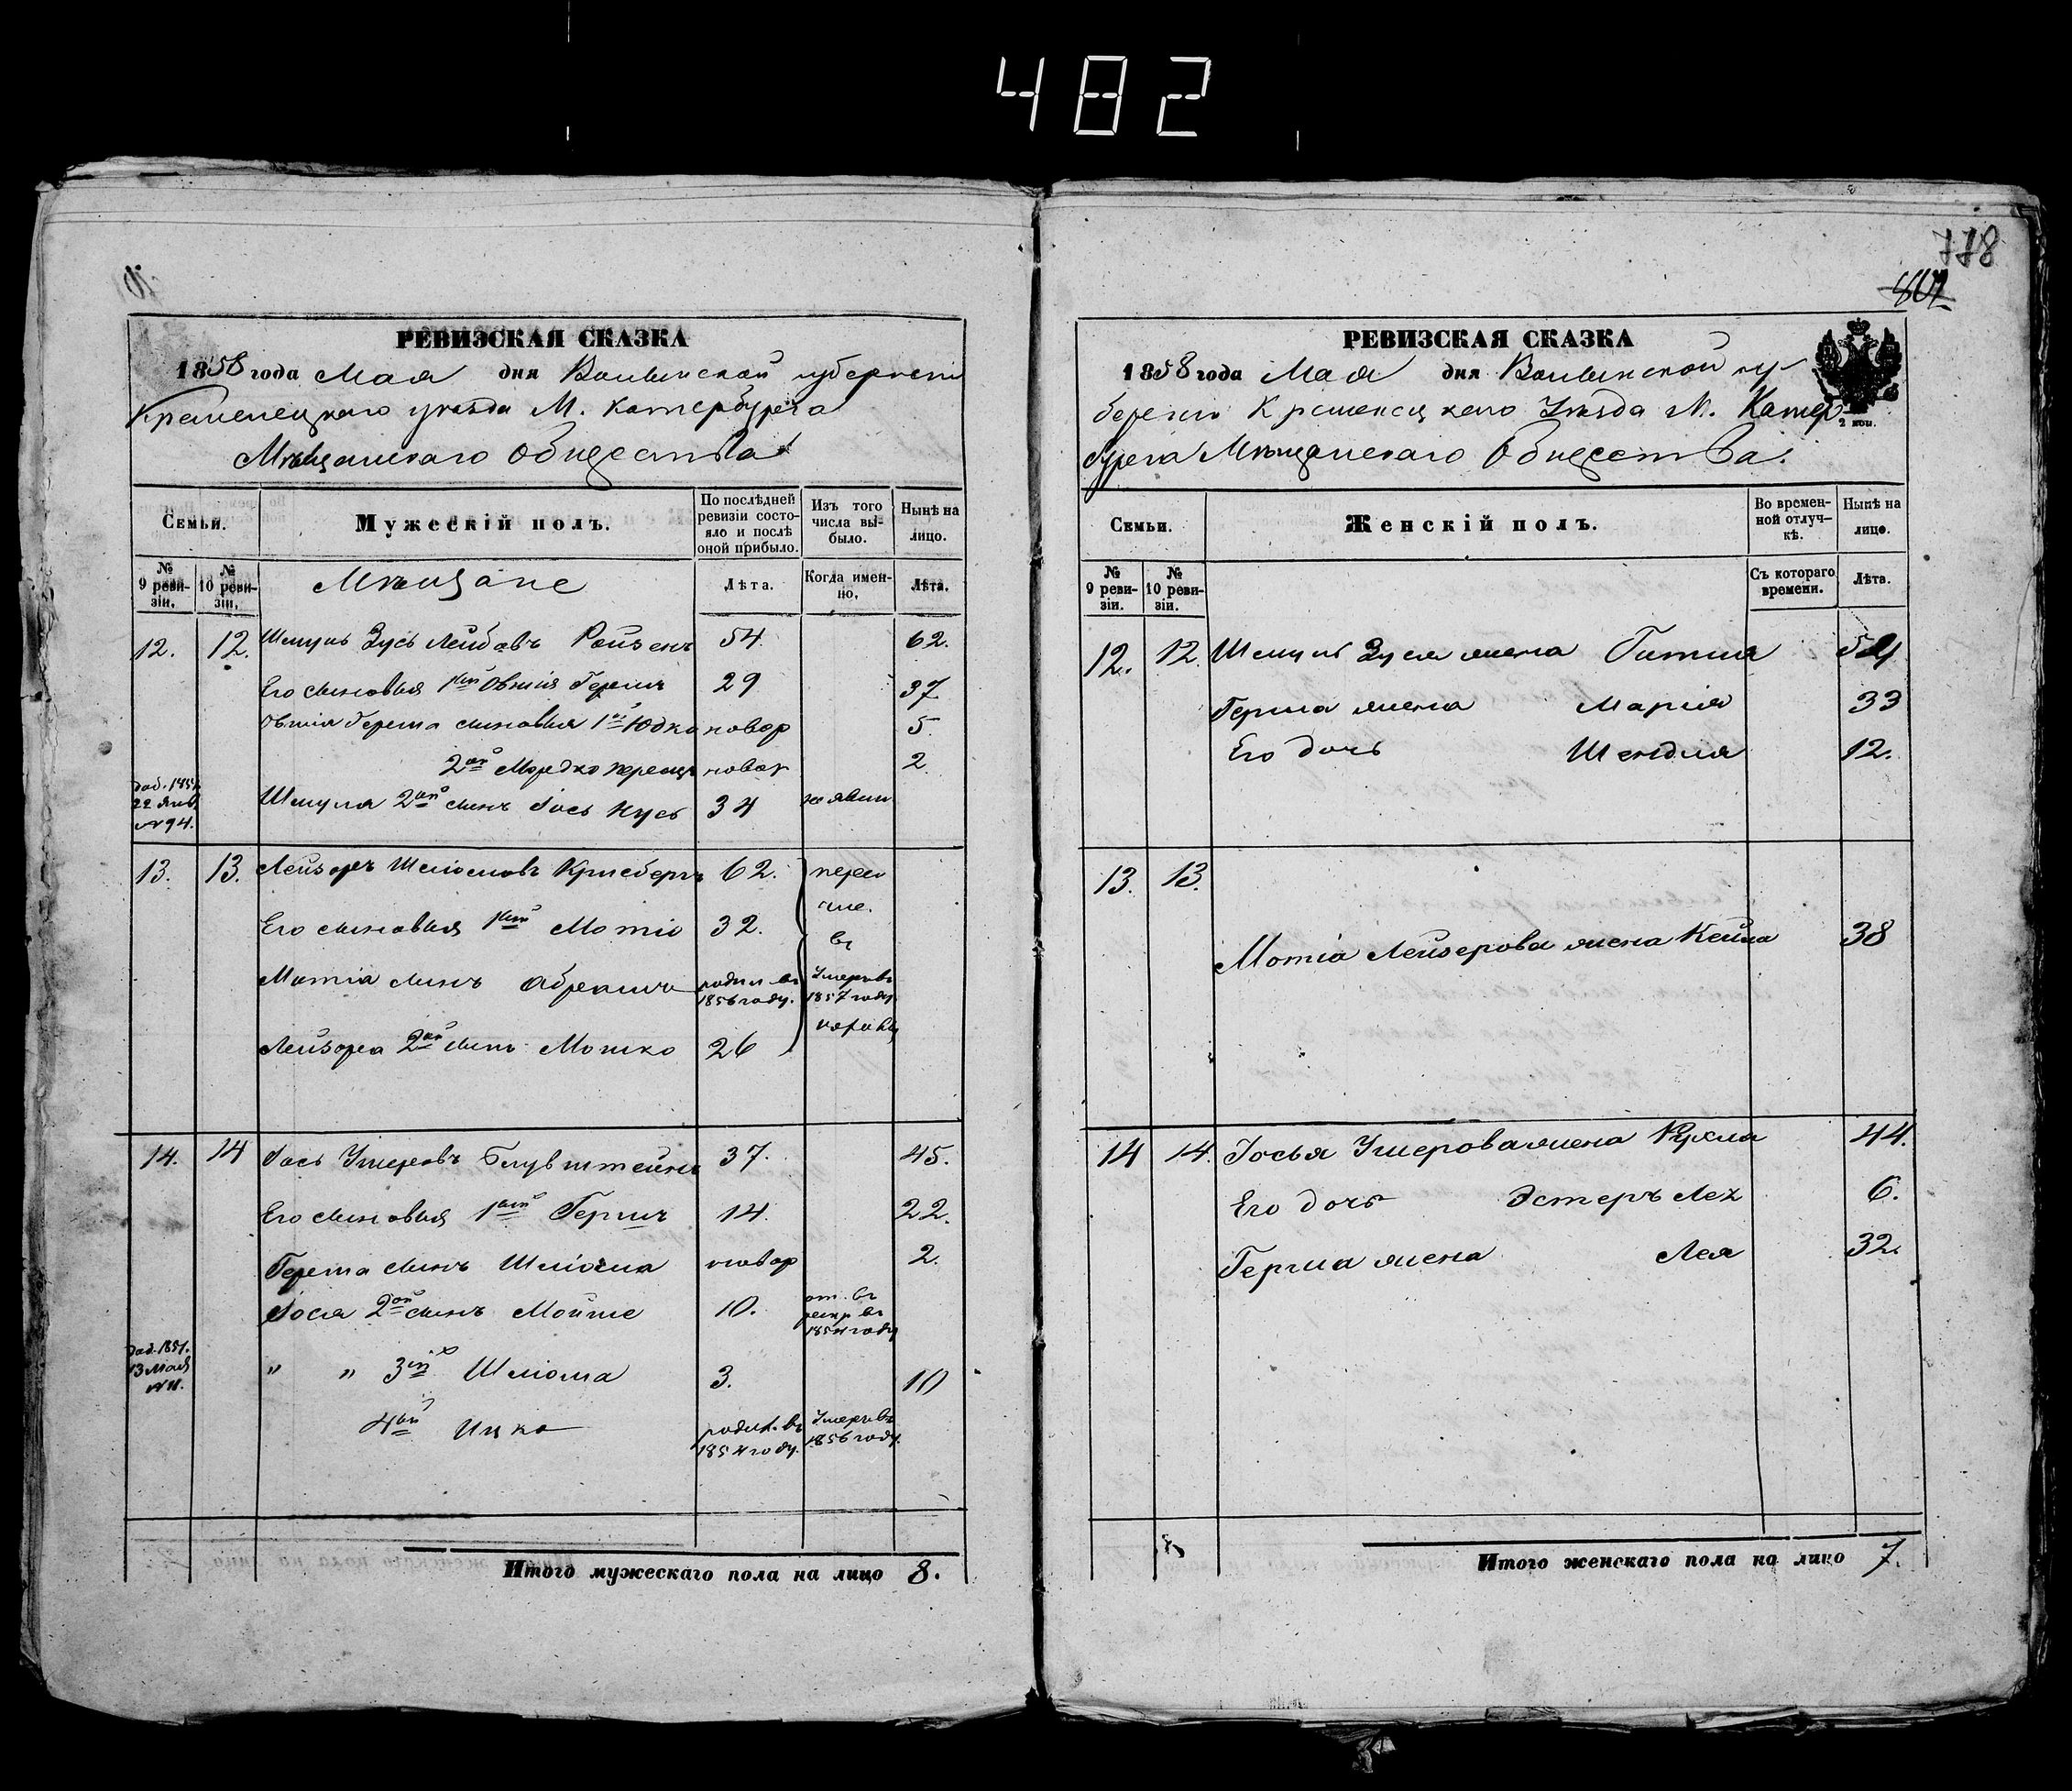 482
778
801
РЕВИЗСКАЯ СКАЗКА
1858 года Мая дня Волынской губернии
Кременецкаго уезда М. Катербурга
Мѣщанскаго Общества
Семьи.
Мужескій полъ.
По послѣдней ревизіи состояло и послѣ оной прибыло.
Изъ того числа выбыло.
Нынѣ на лицо.
№ 9 ревизіи.
№ 10 ревизіи.
Мѣщане
Лѣта.
Когда именно.
Лѣта.
12. 12. Шмуль Зусь Лейбовъ Ройзенъ 54 62.
Его сыновья 1ый Овшія Гершъ 29 37
Овшія Герша сыновья 1й Юдко новор 5.
2ой Мордко новор 2.
доб. 1851 22 Янв №94. Шмуля 2ой сынъ Іось Нусь 34
13. 13. Лейзоръ Шліомовъ Кринсбергъ 62. перечис. въ
Его сыновья 1ый Мотіо 32.
Мотіа сынъ Абрамъ родил. въ 1856 году. Умеръ въ 1857 году
Лейзора 2ой сынъ Мошко 26
14. 14 Іось Умеровъ Блувштейнъ 37. 45.
Его сыновья 1ый Гершъ 14. 22.
Герша сынъ Шліома новор 2.
Іося 2ой сынъ Мойше 10. от. въ рекр. въ 1854 году
доб. 1851. 13 Мая №11. " " 3ій Шліома 3. 10
4ый Ицко родил. въ 1854 году. Умеръ въ 1856 году.
Итого мужескаго пола на лицо 8.
РЕВИЗСКАЯ СКАЗКА
1858 года Мая дня Волынской гу-
берніи Кременецкаго Уѣзда М. Катер-
бурга Мѣщанскаго Общества.
2 коп.
Семьи.
Женскій полъ.
Во временной отлучкѣ.
Нынѣ на лицо.
№ 9 ревизіи.
№ 10 ревизіи.
Съ котораго времени.
Лѣта.
12. 12. Шмуль Зуся жена Гитля
Герша жена Марія 33
Его дочь Шендля 12.
13. 13.
Мотіа Лейзерова жена Кейла 38
14 14. Іосья Умерова жена 44.
Его дочь Эстеръ Лея 6.
Герша жена Лея 32.
Итого женскаго пола на лицо 7.